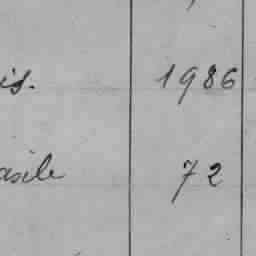 is. 1986
asile 72